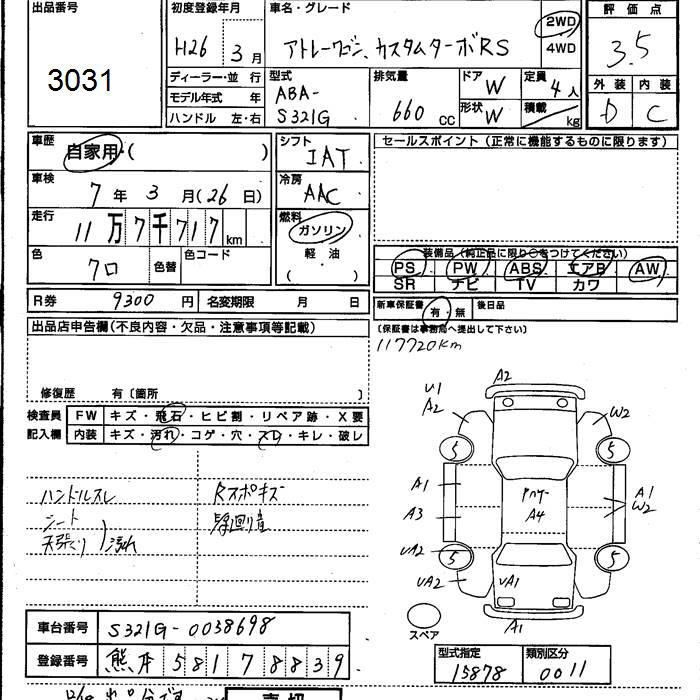 出品番号
3031
初度登録年月
H26 3月
車名・グレード
アトレーワゴン カスタムターボRS
2WD
4WD
評価点
3.5
外装 内装
D C
ディーラー・並行
モデル年式 年
ハンドル 左・右
型式
ABA-
S321G
排気量
660 CC
ドア W
形状 W
定員 4人
積載 kg
車歴
自家用・( )
車検
7年 3月(26日)
走行
11万7千717km
色
クロ
色替
色コード
シフト
IAT
冷房
AAC
燃料
ガソリン
軽油
( ・ )
セールスポイント(正常に機能するものに限ります)
装備品(純正品に限り○をつけてください)
PS PW ABS エアB AW
SR ナビ TV カワ
R券 9300円 名変期限 月 日
新車保証書 有・無 後日品
(保証書は事務局へ提出して下さい)
117720km
出品店申告欄(不良内容・欠品・注意事項等記載)
修復歴 有〔箇所 〕
検査員
記入欄
FW キズ・飛石・ヒビ割・リペア跡・X要
内装 キズ・汚れ・コゲ・穴・スレ・キレ・破レ
ハンドルスレ
シート
天張り 汚れ
Rスポキズ
A2
U1
A2
W2
5
5
A1
A3
A4
A1
W2
UA2
5
5
UA2
UA1
A1
スペア
車台番号 S321G-0038698
登録番号 熊本 581 7 8839
型式指定 類別区分
15878 0011